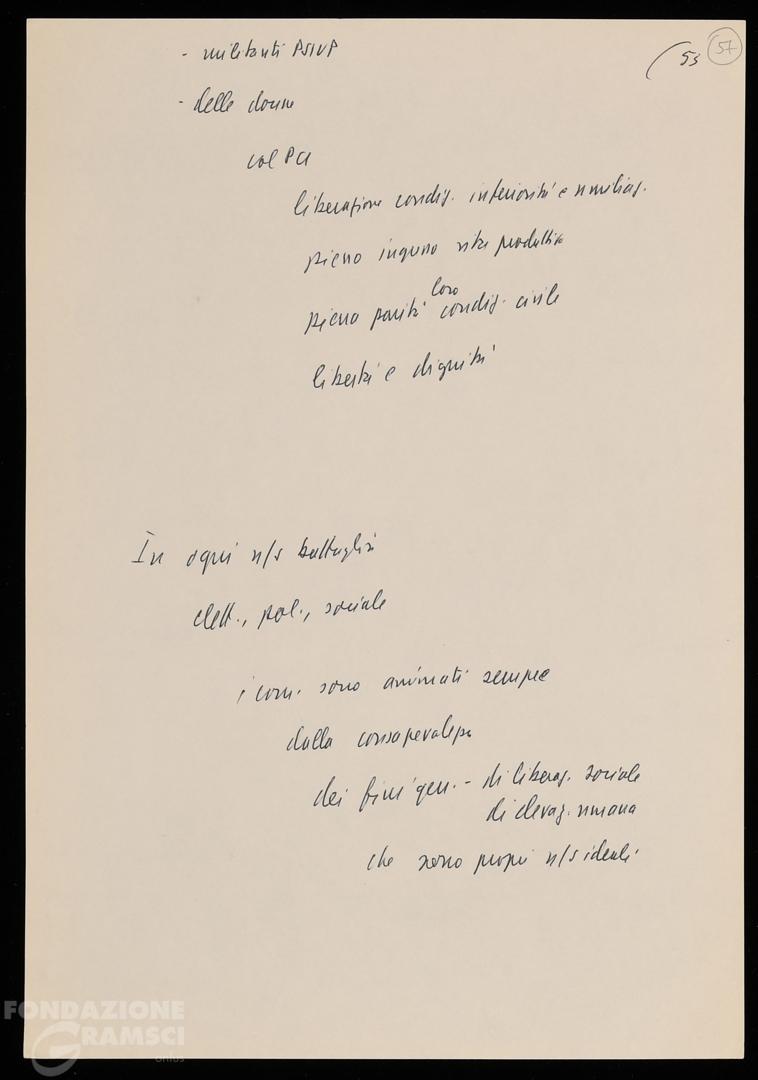 - militanti PSIUP
(55 57
- delle donne
col PCI
liberazione condiz. inferiorità e umiliaz.
pieno ingresso vita produttiva
piena parità loro condiz. civile
libertà e dignità
In ogni n/s battaglia
elett., pol., sociale
i com. sono animati sempre
dalla consapevolezza
dei fini gen. - di liberaz. sociale
di elevaz. umana
che sono propri n/s ideali
FONDAZIONE
GRAMSCI
onlus